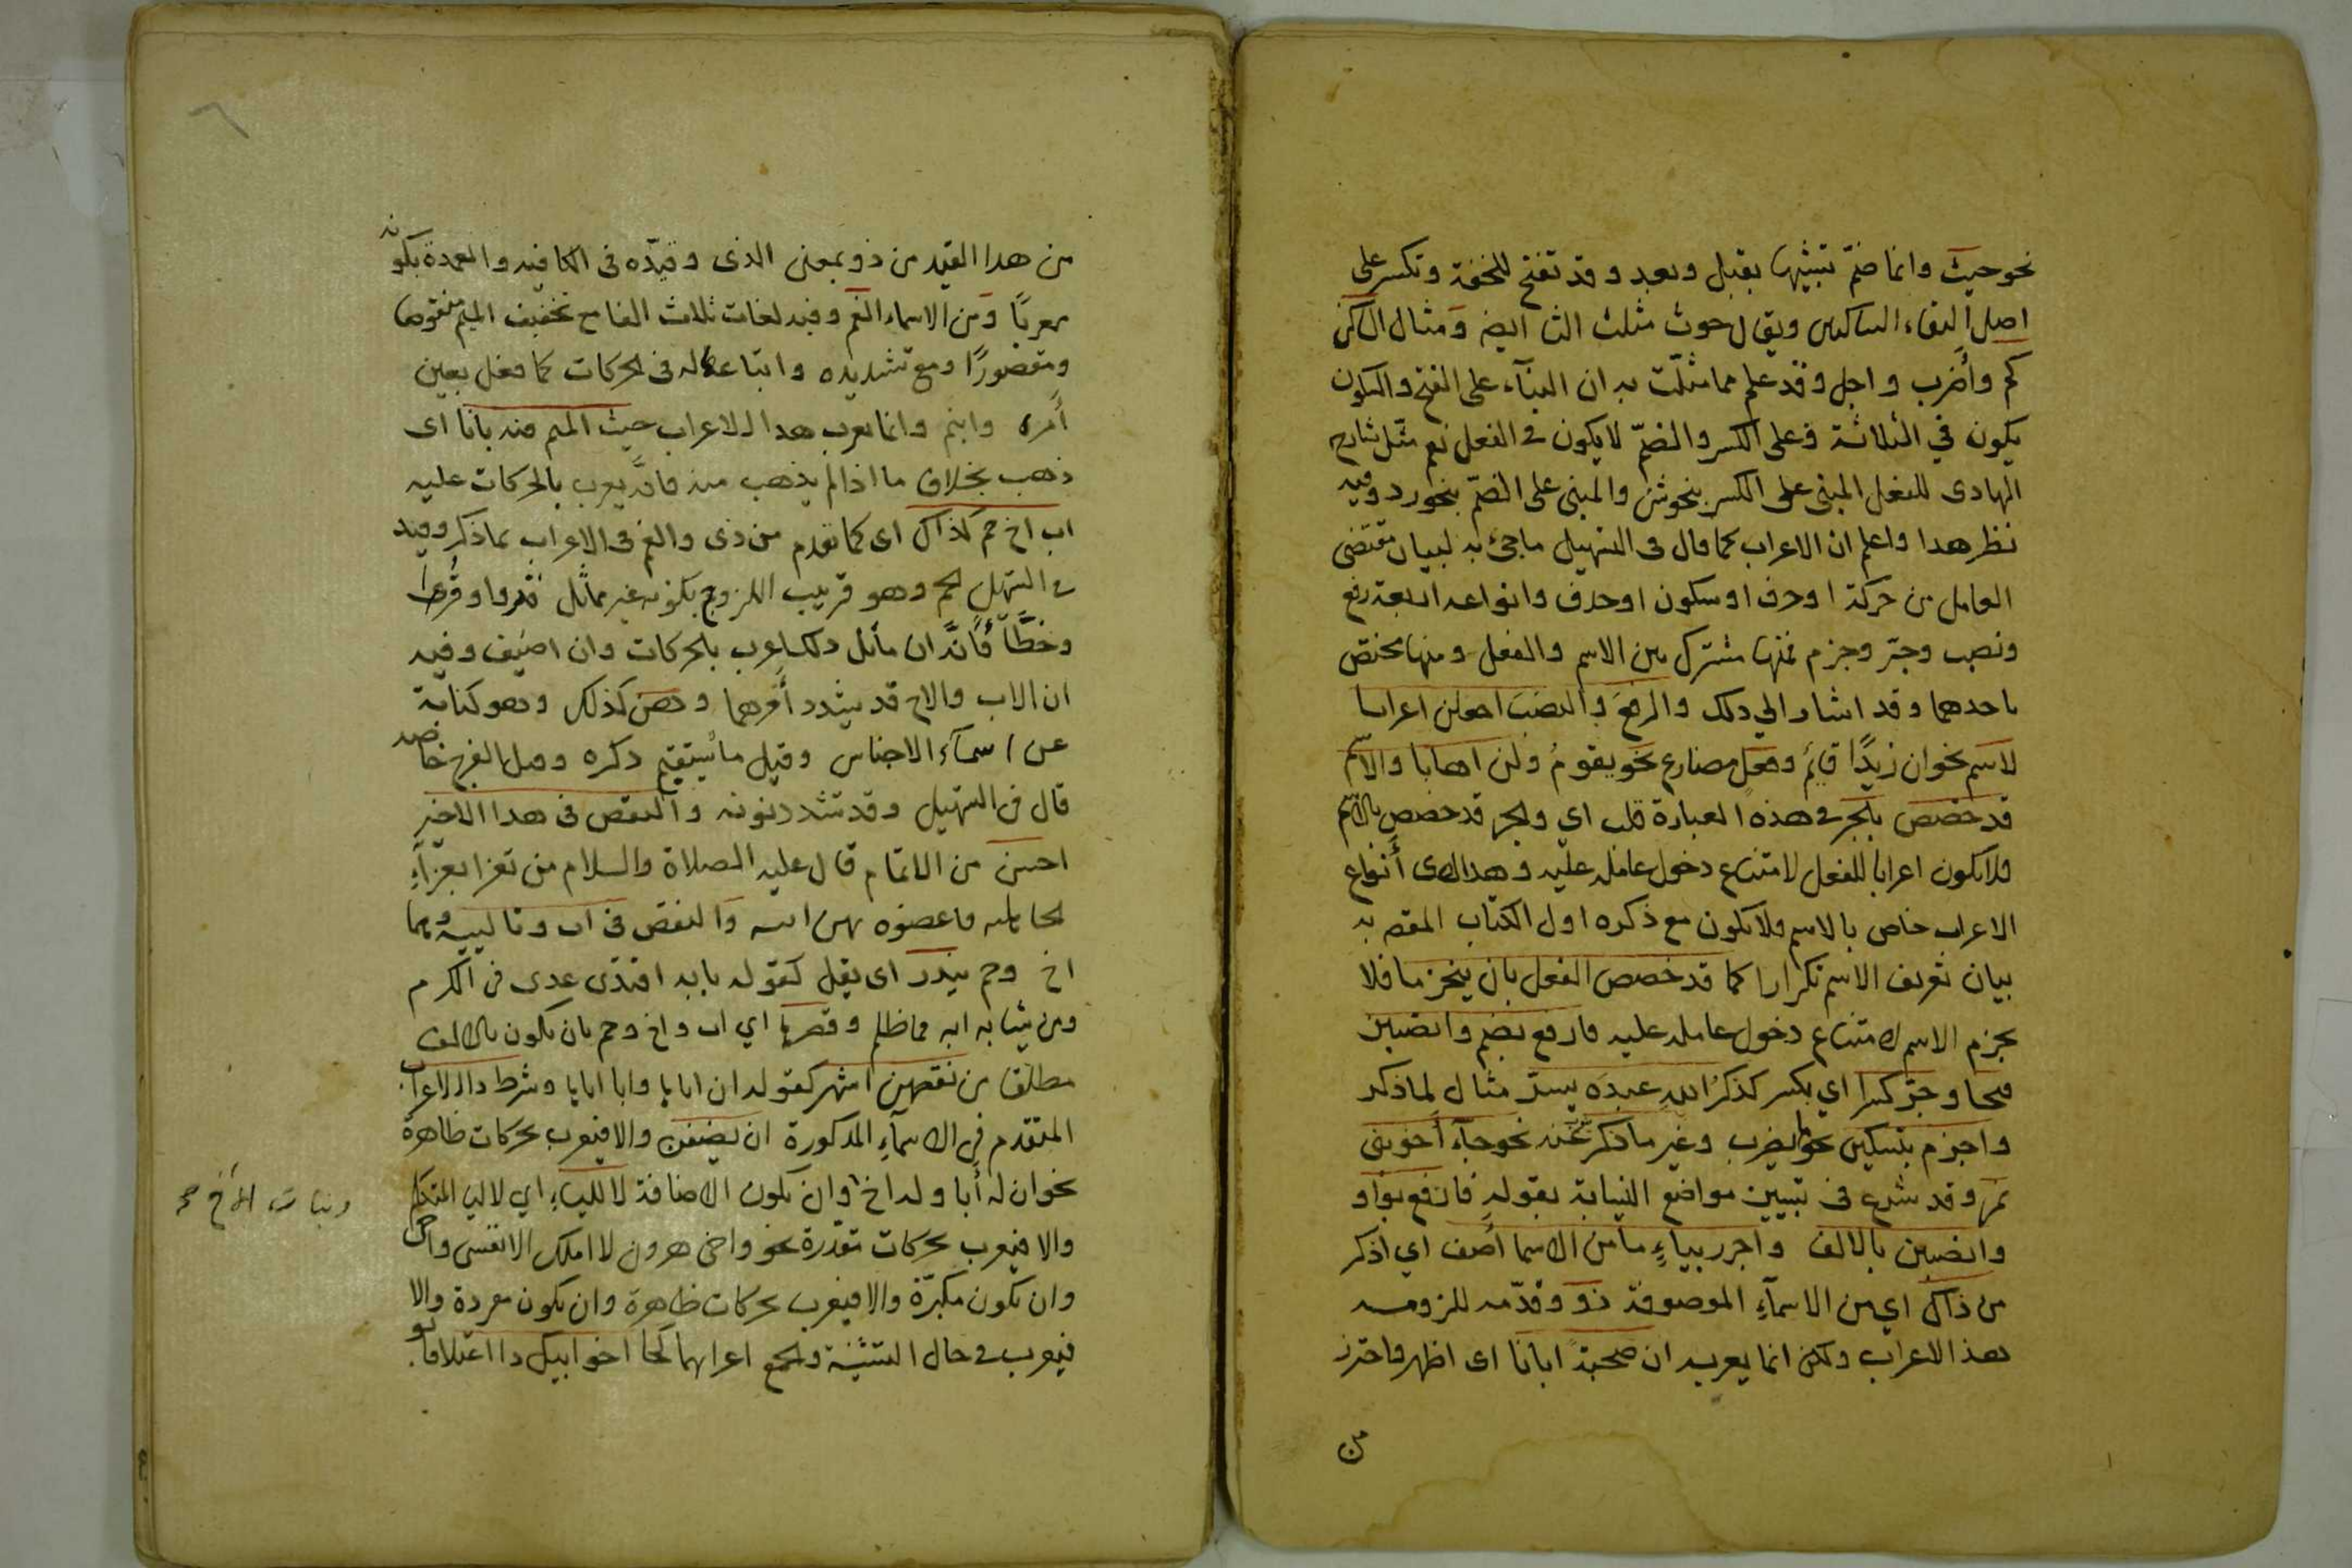 نحو حيث وانما ضمّ تشبيها بقبل وبعد وقد تفتح للخفة وتكسر على
اصل التقاء الساكنين ويقال حوث مثلث الثا ايضا ومثال الساكن
كم وأضرب واجل وقد علم مما مثلت به ان البنآء على الفتح والسكون
يكون في الثلاثة وعلى الكسر والضمّ لا يكون في الفعل نعم مثّل شارح
الهادى للفعل المبنى على الكسر بنحوش والمبنى على الضمّ بنحورد وفيه
نظر هدا واعلم ان الاعراب كما قال فى التسهيل ما جئ به لبيان مقتضى
العامل من حركة او حرف او سكون او حدف وانواعه اربعة رفع
ونصب وجرّ وجزم فمنها مشترك بين الاسم والفعل ومنها مختص
باحدهما وقد اشار الي دلك والرفع والنصب اجعلن اعرابا
لاسم نحو ان زيدًا قايم وفعل مضارع نحو يقومُ ولن اهابا والاسم
قد خصص بالجر في هذه العبارة قلب اي والجر قد خصص بالاسم
فلا يكون اعرابا للفعل لامتناع دخول عامله عليه وهدا لاى أنواع
الاعراب خاص بالاسم فلا يكون مع ذكره اول الكتاب المقصد به
بيان تعريف الاسم تكرارا كما قد خصص الفعل بان ينجزما فلا
يجزم الاسم لامتناع دخول عامله عليه فارفع بضم وانصبن
فتحا وجرّ كسرا اي بكسر كذكرُ اللهِ عبدَه يسرّ مثال لما ذكر
واجزم بتسكين نحو لم يضرب وغير ما ذكر ينب عنه نحو جآء أخو بنى
نمر وقد شرع فى تبيين مواضع النيابة بقوله فارفع بواو
وانصبن بالالف واجرر بياءٍ ما من الاسما أصف اي اذكر
من ذاك اي من الاسمآءِ الموصوفة ذو وقدّمه للزومه
هذا الاعراب ولكن انما يعرب به ان صحبةً ابانا اى اظهر واحترز
من
٦
من هدا القيد من ذو بمعنى الذى وقيدّه فى الكافيه والعمدة بكونه
معربًا ومن الاسماء الفم وفيه لغات ثلاث الفا مع تخفيف الميم منقوصا
ومقصورًا ومع تشديده واتباعها له فى الحركات كما فعل بعين
أمرء وابنم وانما يعرب هدا الاعراب حيث الميم منه بانا اى
ذهب بخلاف ما اذا لم يذهب منه فانّه يعرب بالحركات عليه
اب اخ حم كذاك اى كما تقدم من ذى والفم فى الاعراب بما ذكر وقيد
في التسهيل الحم وهو قريب الزوج بكونه غير مماثل قروا وقرءا
وخطأً فأنّه ان ماثل دلك اعرب بالحركات وان اضيف وفيه
ان الاب والاخ قد يشدد أخرهما وهن كذلك وهو كناية
عن اسمآء الاجناس وقيل ما يستقبح ذكره وقيل الفرج خاصه
قال فى التسهيل وقد تشدد نونه والنقص فى هدا الاخير
احسن من الاتمام قال عليه الصلاة والسلام من تعزا بعزاءِ
الجاهليه فاعضوه بهن ابيه والنقص فى اب وتالييه وهما
اخ وحم يندر اى يقل كقوله بابه اقتدى عدى فى الكرم
ومن يشابه ابه فما ظلم وقصرها اي اب واخ وحم بان يكون بالالف
مطلقا من نقصهن اشهر كقوله ان اباها وابا اباها وشرط دا الاعراب
المتقدم فى الاسمآءِ المدكورة ان يضفن والا فيعرب بحركات ظاهرة
نحو ان له أبا وله اخ وان يكون الاضافة لا للياءِ اي لا لياء المتكلم
والا فيعرب بحركات مقدّرة نحو واخى هرون لا املك الا نفسى واخى
وان يكون مكبرّة والا فيعرب بحركات ظاهرة وان يكون مفردة والا
فيعرب في حال التثنية والجمع اعرابهما كجا اخو ابيك دا اعتلا فابو
وبنات الاخ